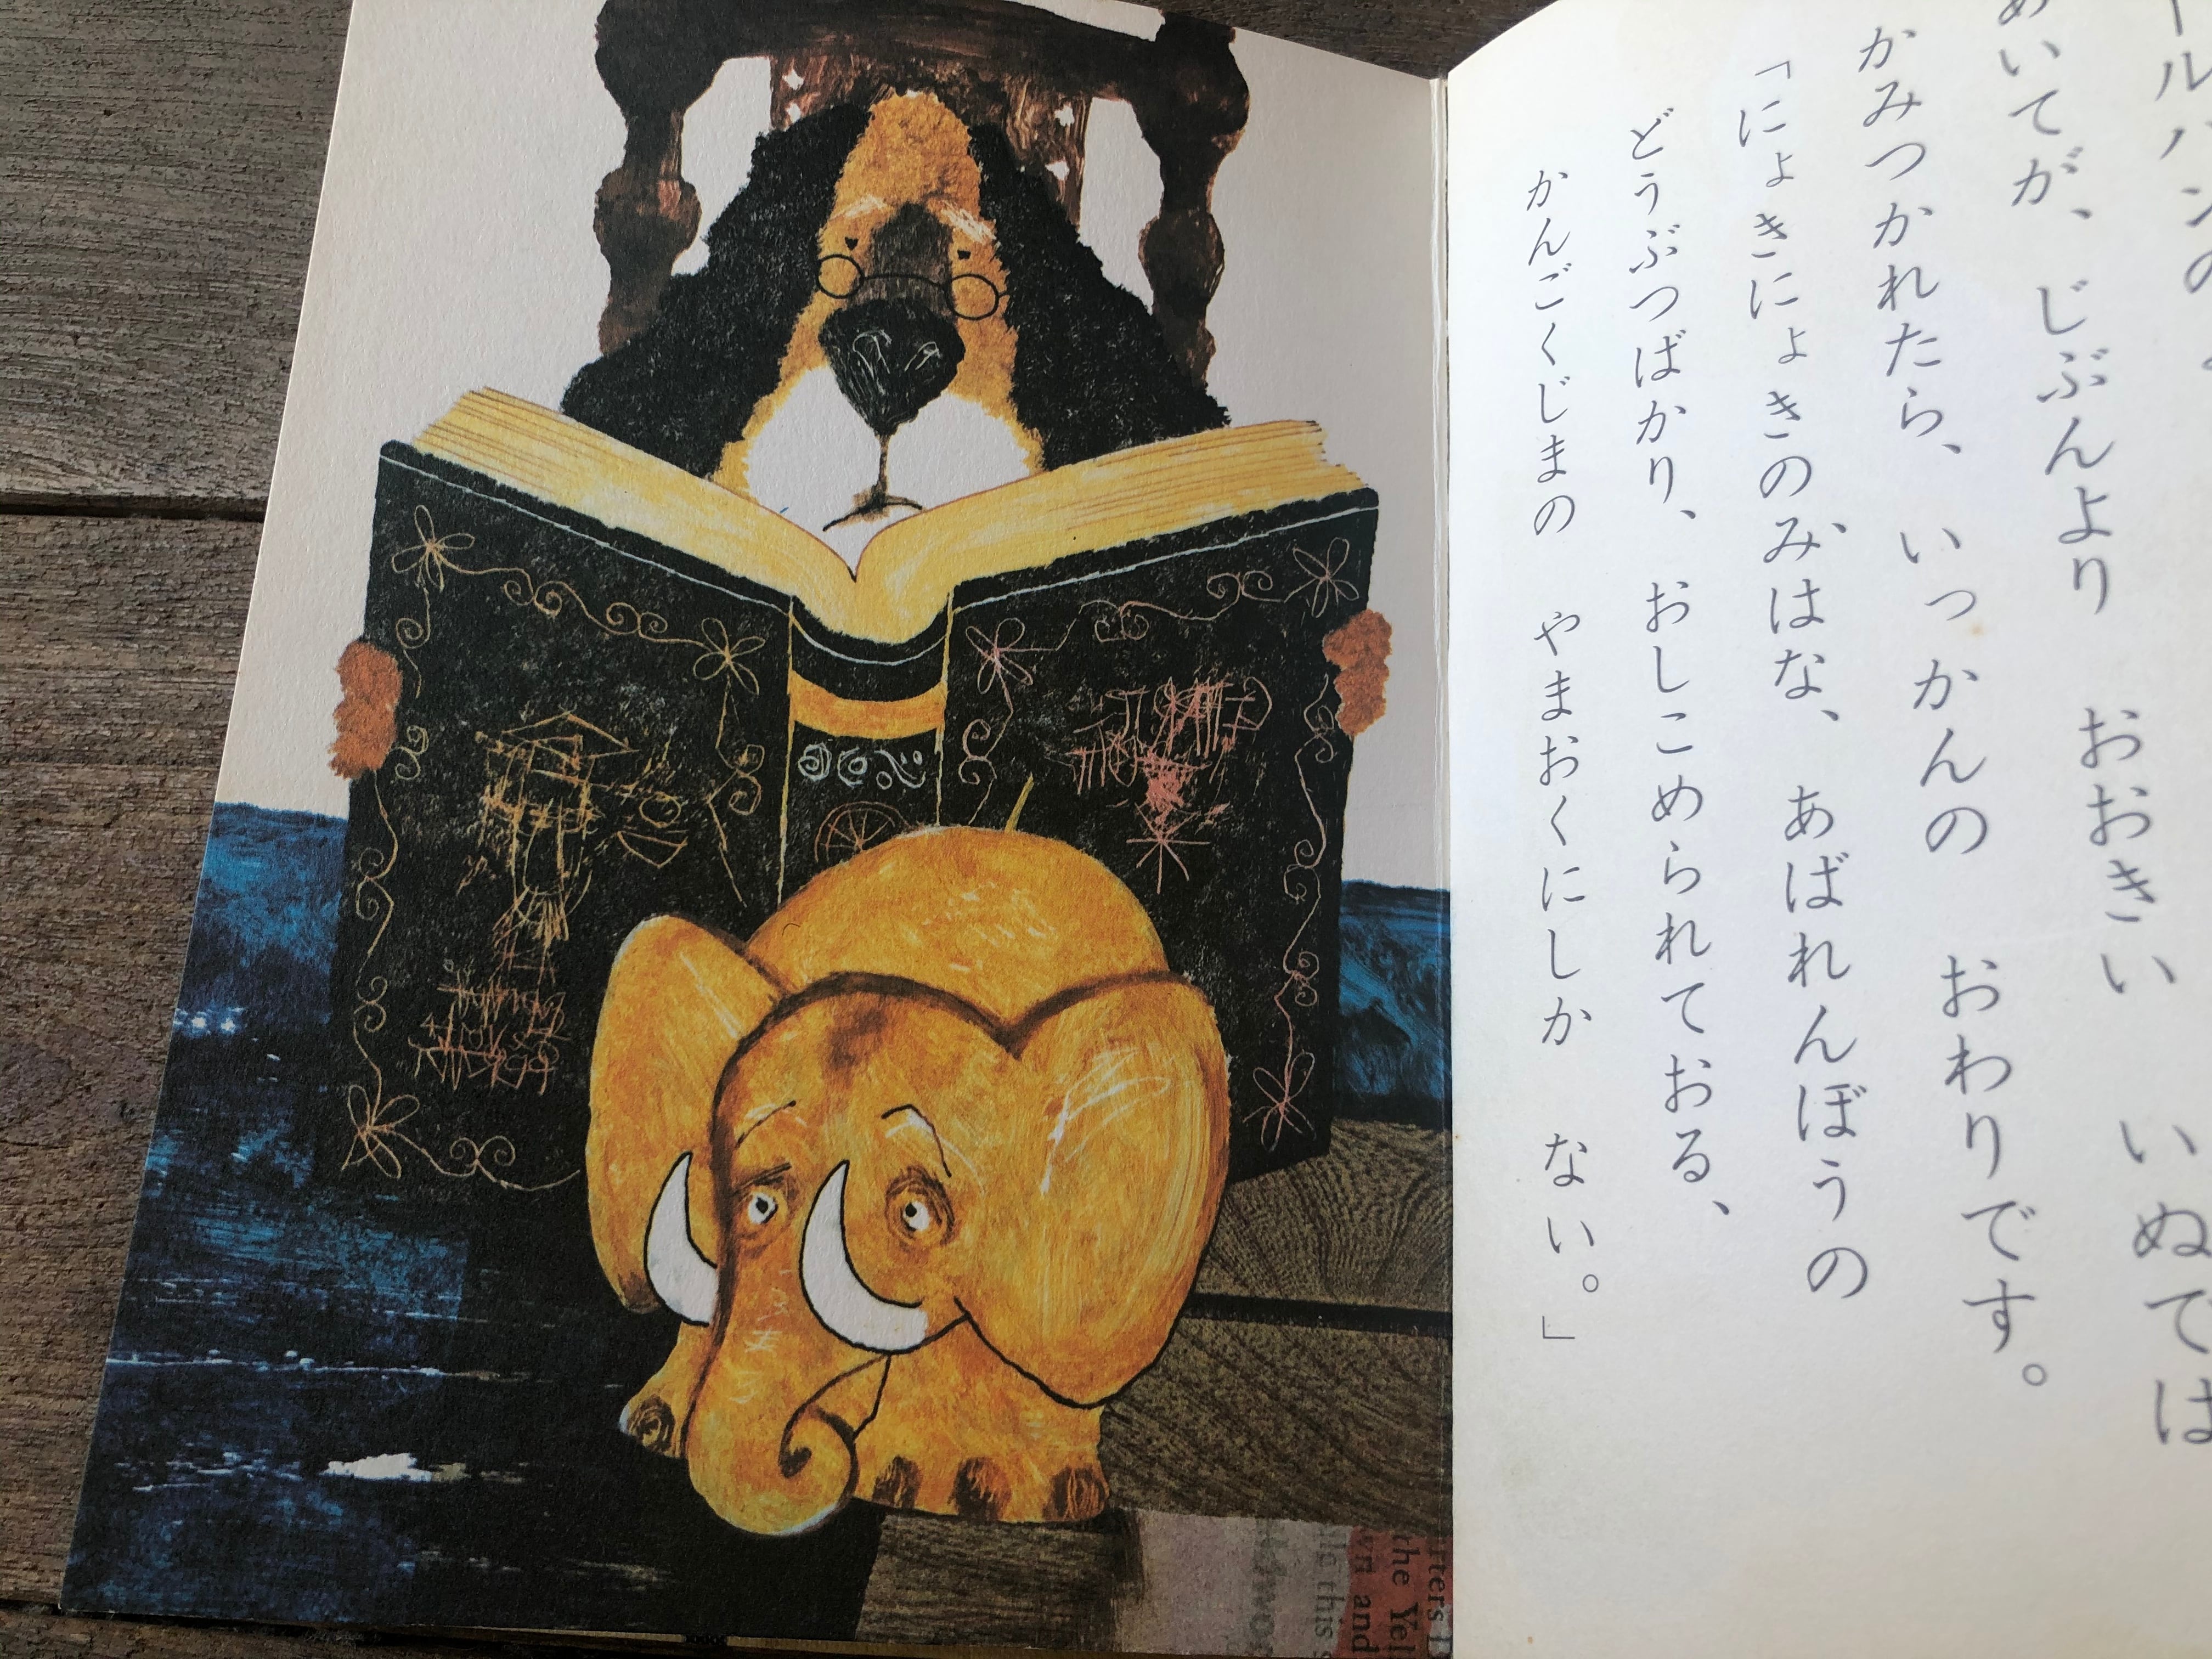 ールハンの
めいてが、じぶんより おおきい いぬでは
かみつかれたら、いっかんの おわりです。
「にょきにょきのみはな、あばれんぼうの
どうぶつばかり、おしこめられておる、
かんごくじまの やまおくにしか ない。」
the Yel
and
this